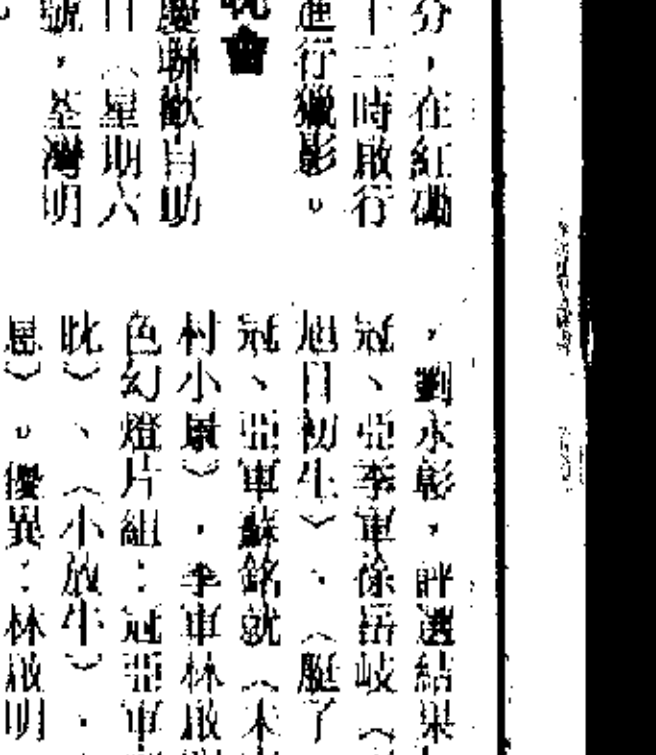 分，在紅磡
十二時啟行
進行獵影。
晚會
慶聯歡自助
日（星期六
號，荃灣明
，劉永彰，評選結果
冠、亞季軍徐岳岐（
旭日初生）、（艇了
冠、亞軍蘇銘就（木
村小景），季軍林啟
色幻燈片組：冠亞軍
）、（小放牛）、
）。優異：林啟明